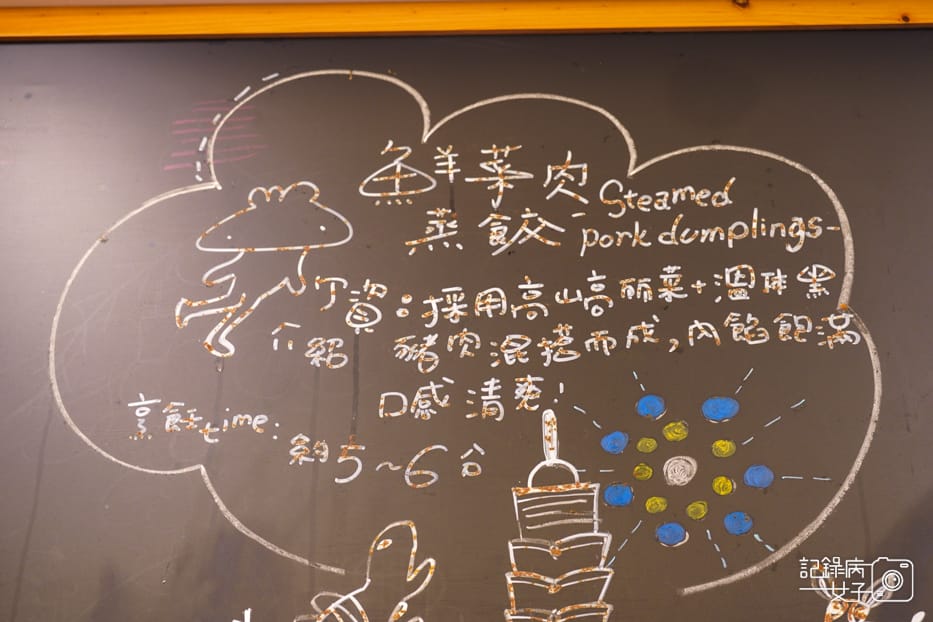 鮮菜肉 Steamed
蒸餃-pork dumplings-
丁資：採用高山高丽菜+溫琲黑
介紹 豬肉混搭而成，內餡飽滿
口感清爽！
烹飪time:
約5~6分
記錄病
女子